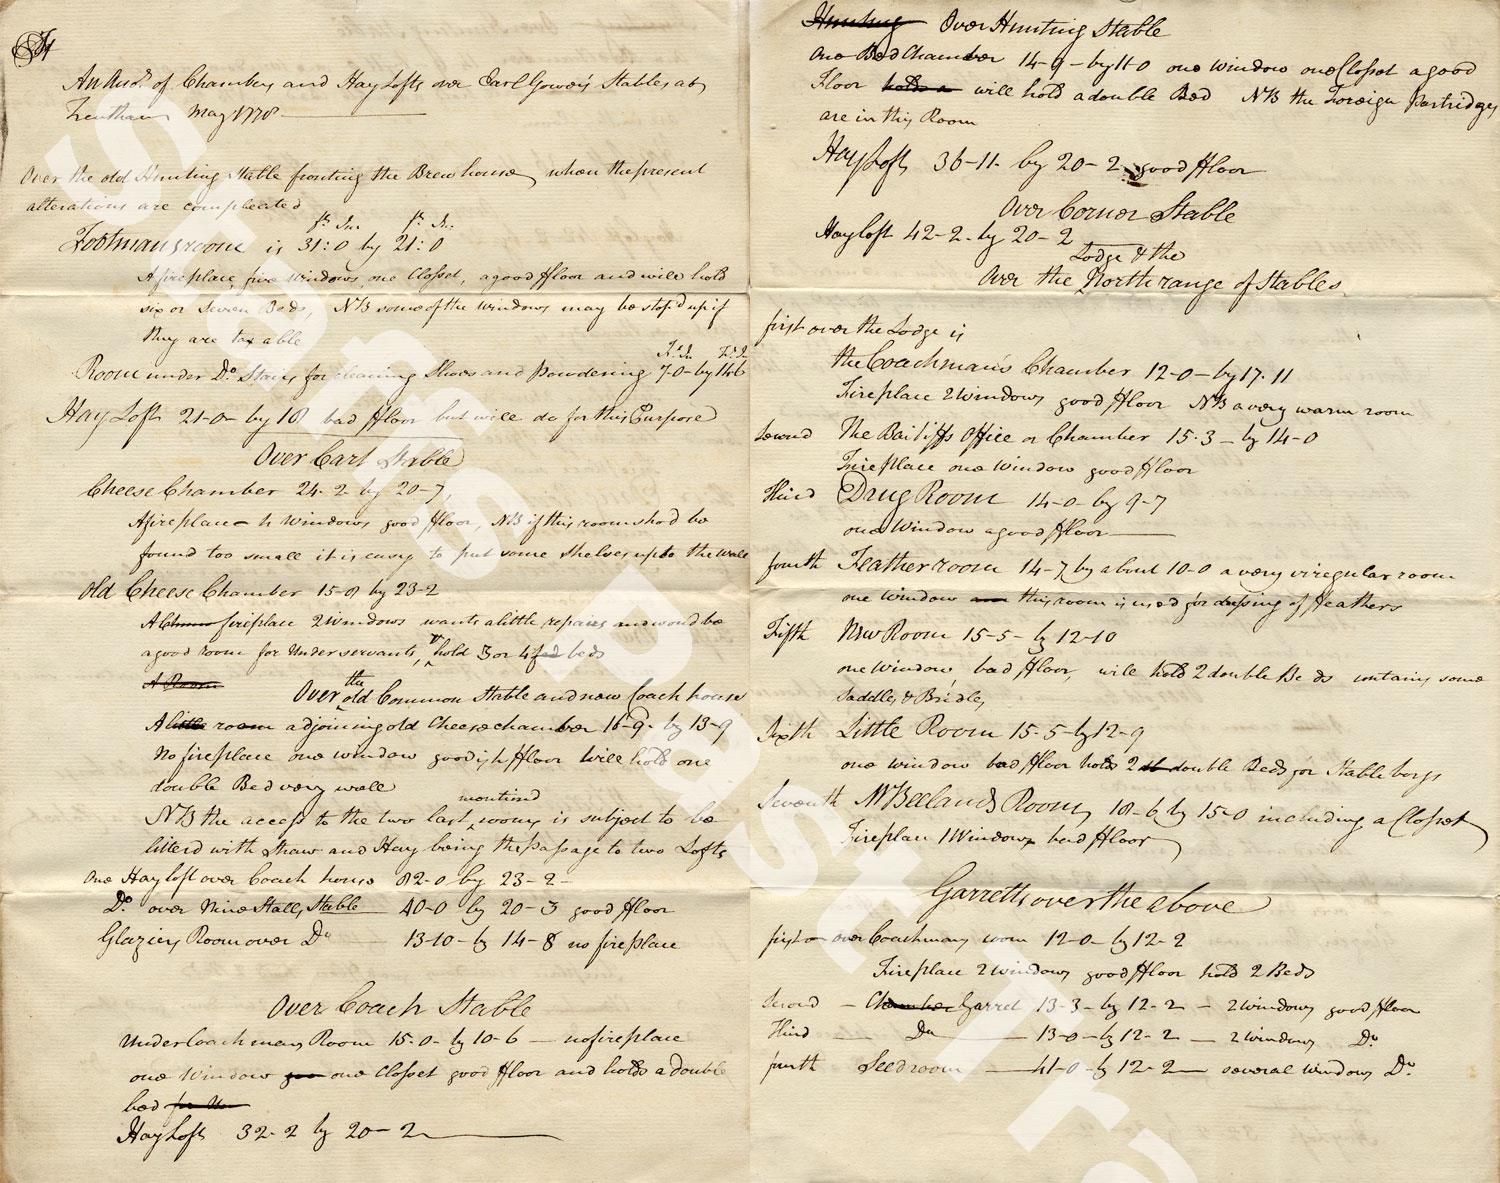 An Acct. of Chambers and Hay Lofts over Earl Gower's Stables at
Trentham May 1778
Over the old Hunting Stable fronting the Brewhouse, when the present
alterations are compleated
ft. In: ft. In:
Footmans roome is 31:0 by 21:0
A fireplace, five Windows, one Closset, a good ffloor and will hold
six or Seven Beds, NB some of the Windows may be stop'd up if
they are taxable
Ft. In Ft. In
Room under Do. Stairs for cleaning Shoes and Powdering 7-0-by 14-6
Hay Loft 21-0- by 18 bad ffloor but will do for this Purpose
Over Cart Stable
Cheese Chamber 24-2 by 20-7,
A fireplace - 4 Windows good ffloor, NB if this room shod be
found too small it is easy to put some shelves up to the wall
Old Cheese Chamber 15-8 by 23-2
A fireplace 2 Windows wants a little repairs and woud be
a good room for Under servants, hold 3 or 4 beds
A Room
the
Over old Common Stable and new Coach house
A little room adjoining old Cheese chamber 16-9- by 13-9
No fireplace one window goodish ffloor will hold one
double Bed very well
mentioned
NB the access to the two last rooms is subject to be
litterd with Straw and Hay being the passage to two Lofts
One Hayloft over Coach house 82-0 by 23-2-
Do. over Nine Stall, Stable 40-0 by 20-3 good ffloor
Glaziers Room over Do. 13-10- by 14-8 no fireplace
Over Coach Stable
Under Coachmans Room 15-0- by 10-6 - no fireplace
one Window one Closset good ffloor and holds a double
bed
Hay Loft 32-2 by 20-2
Hunting Over Hunting Stable
One Bed Chamber 14-9-by 11-0 one Window one Closet a good
Floor holds a will hold a double Bed NB the Foreign Partridges
are in this Room
Hay Loft 36-11- by 20-2 good ffloor
Over Corner Stable
Hay loft 42-2-by 20-2
Lodge & the
Over the North range of Stables
first over the Lodge is
the Coachman's Chamber 12-0-by 17-11
Fireplace 2 Windows good ffloor NB a very warm room
Second The Bailiffs Office or Chamber 15-3-by 14-0
Fireplace one Window good ffloor
Third Drug Room 14-0-by 9-7
one Window a good ffloor
fourth Feather room 14-7 by about 10-0 a very irregular room
one window this room is used for drissing of ffeathers
Fifth New Room 15-5-by 12-10
one Window bad ffloor, will hold 2 double Beds contains some
Saddles & Bridles,
Sixth Little Room 15-5-by 12-9
one window bad ffloor holds 2 double Beds for Stable boys
Seventh Mr Beelands Room, 18-6 by 15-0 including a Closset
Fireplace 1 Window bad ffloor
Garretts over the above
first over Coachmans room 12-0-by 12-2
Fireplace 2 Windows good ffloor hold 2 Beds
Second - Chamber Garret 13-3-by 12-2 - 2 windows good ffloor
Third Do. 13-0-by 12-2 - 2 windows Do.
fourth Seed room 41-0-by 12-2 several Windows Do.